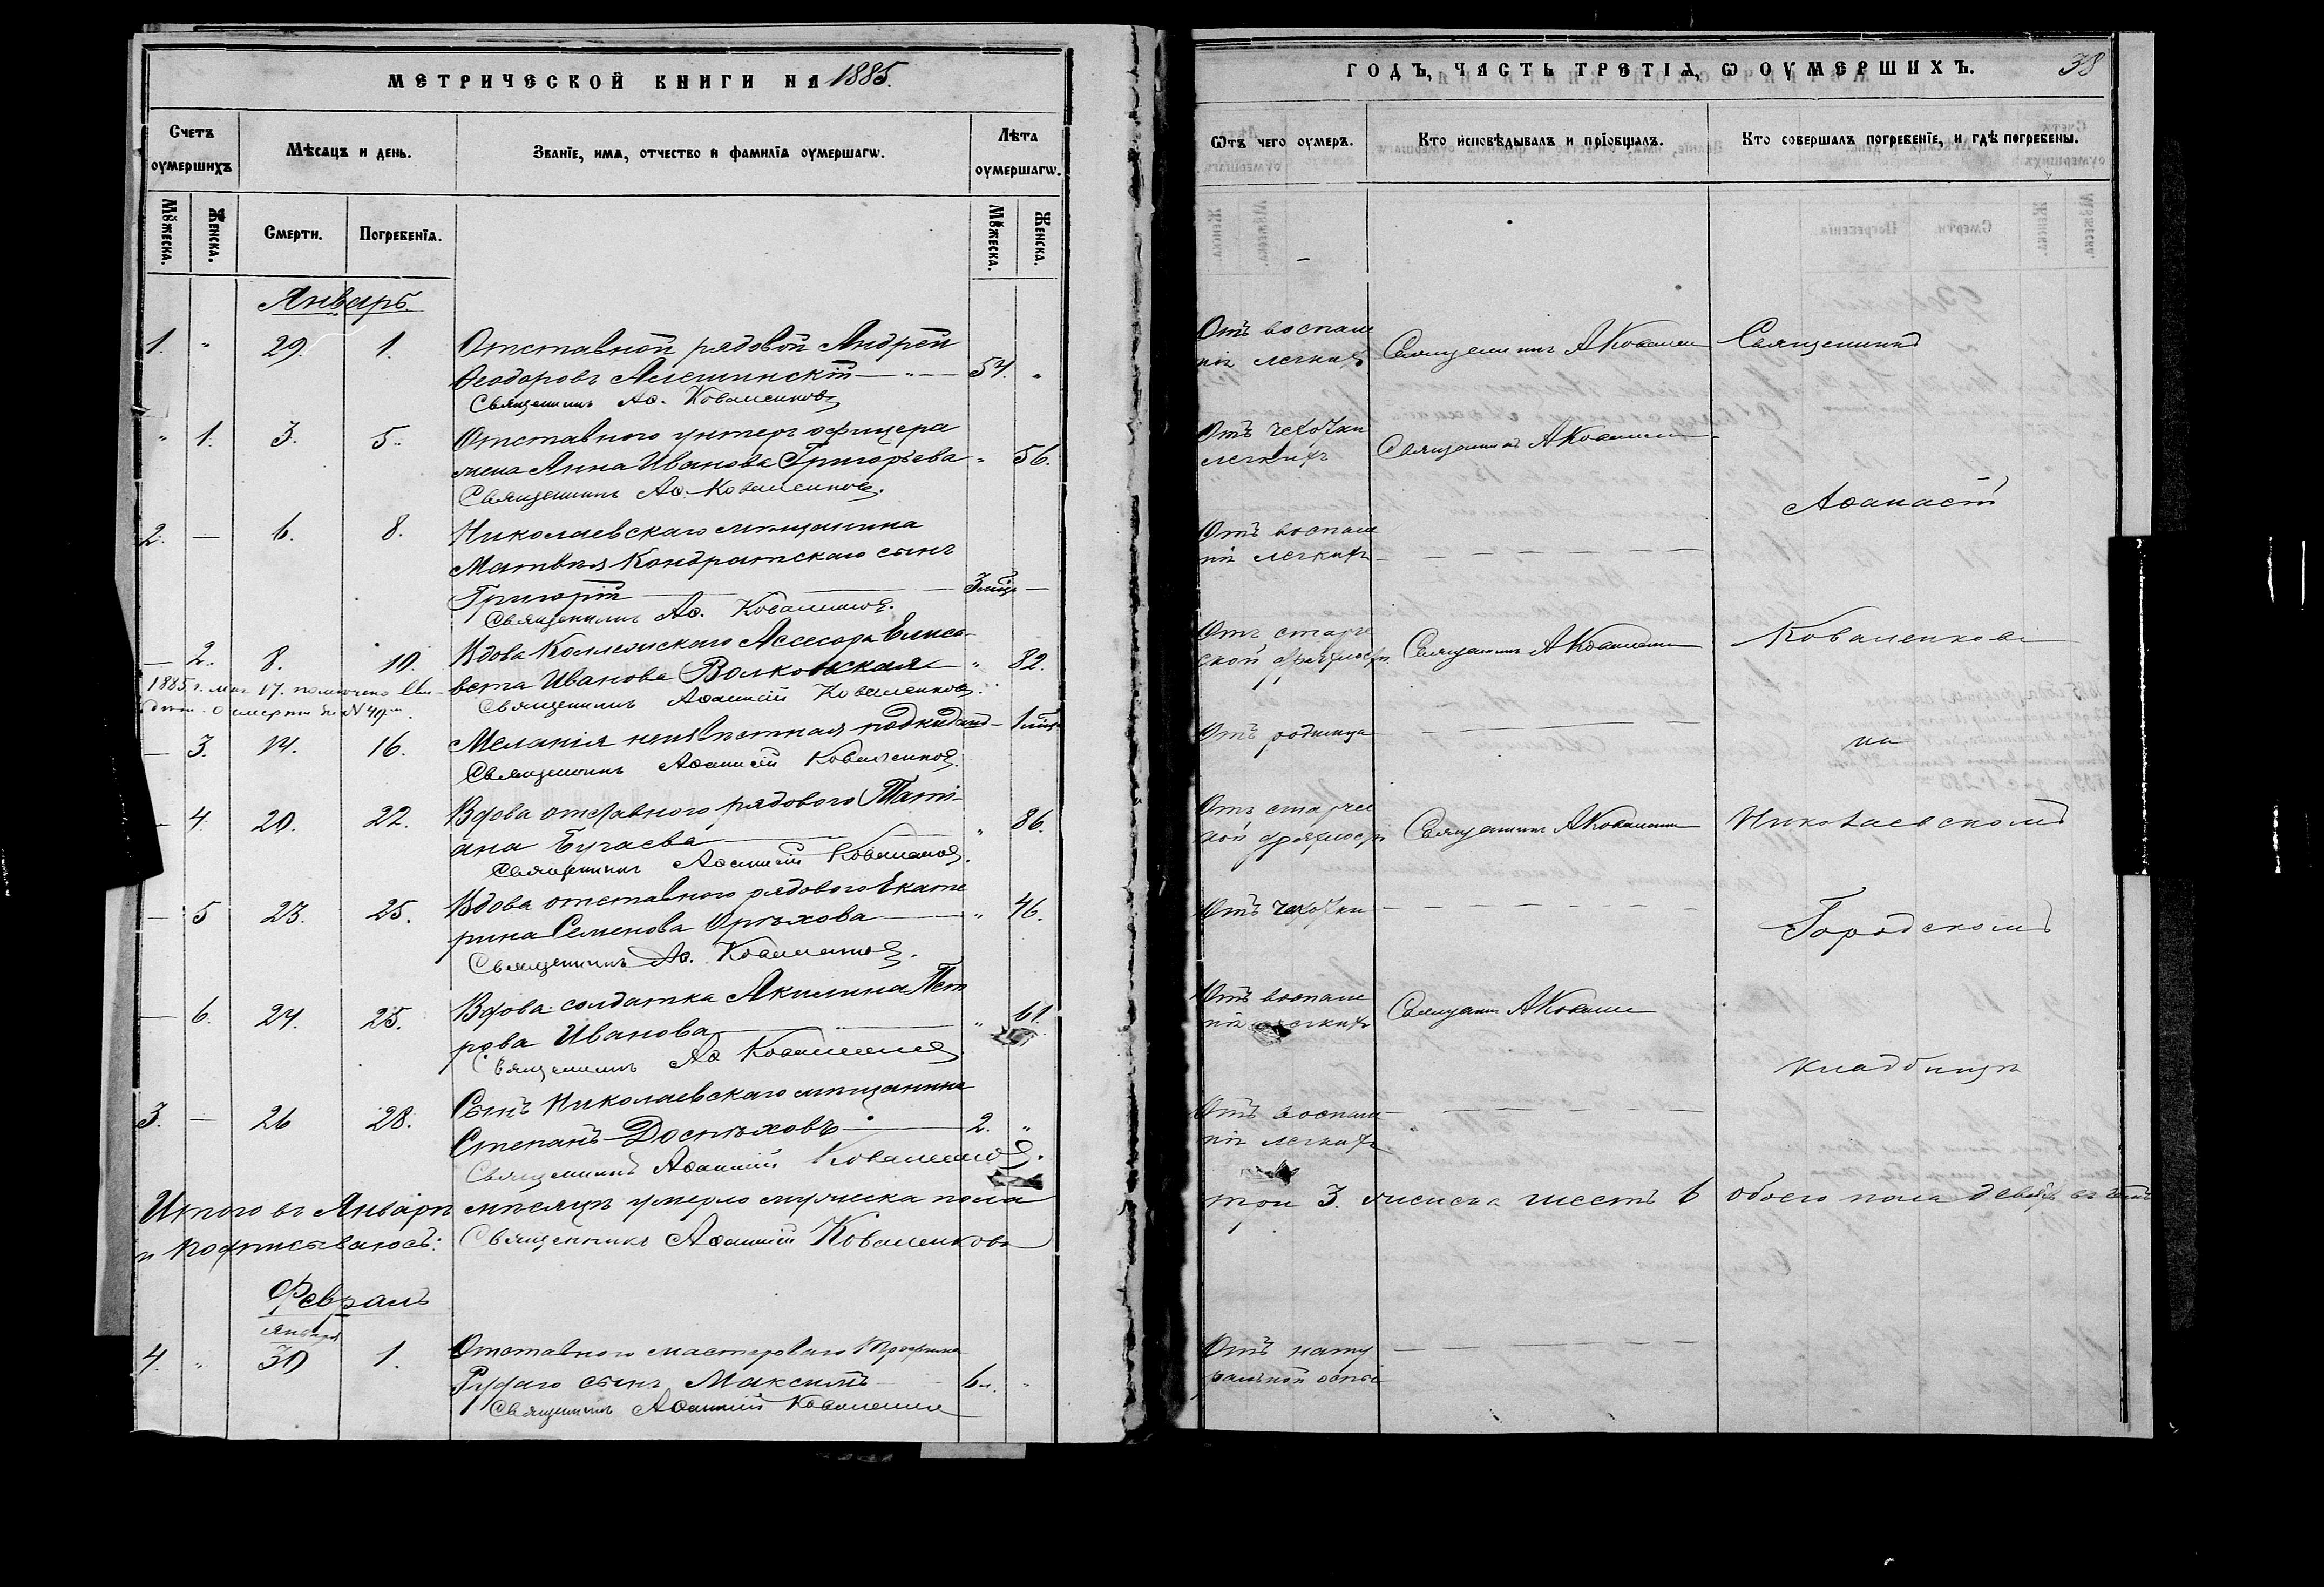 МЕТРИЧЕСКОЙ КНИГИ НА 1885.
Счетъ оумершихъ
Мѣсяцъ и день.
Званїе, имѧ, отчество и фамилїѧ оумершагѡ.
Лѣта оумершагѡ.
Мꙋжеска.
Женска.
Смерти.
Погребенїѧ.
Мꙋжеска.
Женска.
Январь.
1. " 29. 1. Отставной рядовой Андрей
Ѳеодоровъ Алешинскій — " — 54. "
Священникъ Аѳ. Коваленковъ
" 1. 3. 5. Отставного унтеръ офицера
жена Анна Иванова Григорьева " 56.
Священникъ Аѳ. Коваленковъ.
2. — 6. 8. Николаевскаго мѣщанина
Матвѣя Кондратскаго сынъ
Григорій — 3 мѣц —
Священникъ Аѳ. Коваленковъ.
— 2. 8. 10. Вдова Коллежскаго Ассесора Елиса-
вета Иванова Волковская " 82.
1885 г. мая 17.
о смерти за № 49
Священникъ Аѳанасій Коваленковъ.
— 3. 14. 16. Меланія неизвѣстная подкидыш — 1 мѣц
Священникъ Аѳанасій Коваленковъ.
— 4. 20. 22. Вдова отставного рядового Татi-
ана Бугаева " 86.
Священникъ Аѳанасій Коваленковъ.
— 5 23. 25. Вдова отставного рядового Екате
рина Семенова Орѣхова — " 46.
Священникъ Аѳ. Коваленковъ.
— 6. 24. 25. Вдова солдатка Акилина Пет
рова Иванова — " 61.
Священникъ Аѳ Коваленковъ
3. — 26 28. Сынъ Николаевскаго мѣщанина
Степанъ Доспѣховъ — 2. "
Священникъ Аѳанасій Коваленковъ.
Итого въ Январѣ мѣсяцѣ умерло мужеска пола
и подписываюсь: Священникъ Аѳанасій Коваленковъ
Февраль
Января
4. " 30 1. Отставного мастероваго Трофима
Рудаго сынъ Максимъ 6 л. "
Священникъ Аѳанасій Коваленковъ
ГОДЪ, ЧАСТЬ ТРЕТІѦ, Ѡ ОУМЕРШИХЪ. 38
Ѿтъ чего оумеръ.
Кто исповѣдывалъ и прїобщалъ.
Кто совершалъ погребенїе, и гдѣ погребены.
Отъ воспале
нія легкихъ Священникъ А Коваленк Священникъ
Отъ чахотки
легкихъ Священникъ А Коваленк
Аѳанасій
Отъ воспале
нія легкихъ — — —
Отъ старче
ской дряхлости Священникъ А Коваленк Коваленковъ
Отъ родимца — — —
на
Отъ старчес
кой дряхлости Священникъ А Коваленк Николаевскомъ
Отъ чахотки — — —
Городскомъ
Отъ воспале
нія легкихъ Священник А Коваленк
кладбищѣ
Отъ воспале — — —
нія легкихъ
три 3. женска шесть 6 обоего пола девять въ чемъ
Отъ нату — — —
ральной оспы